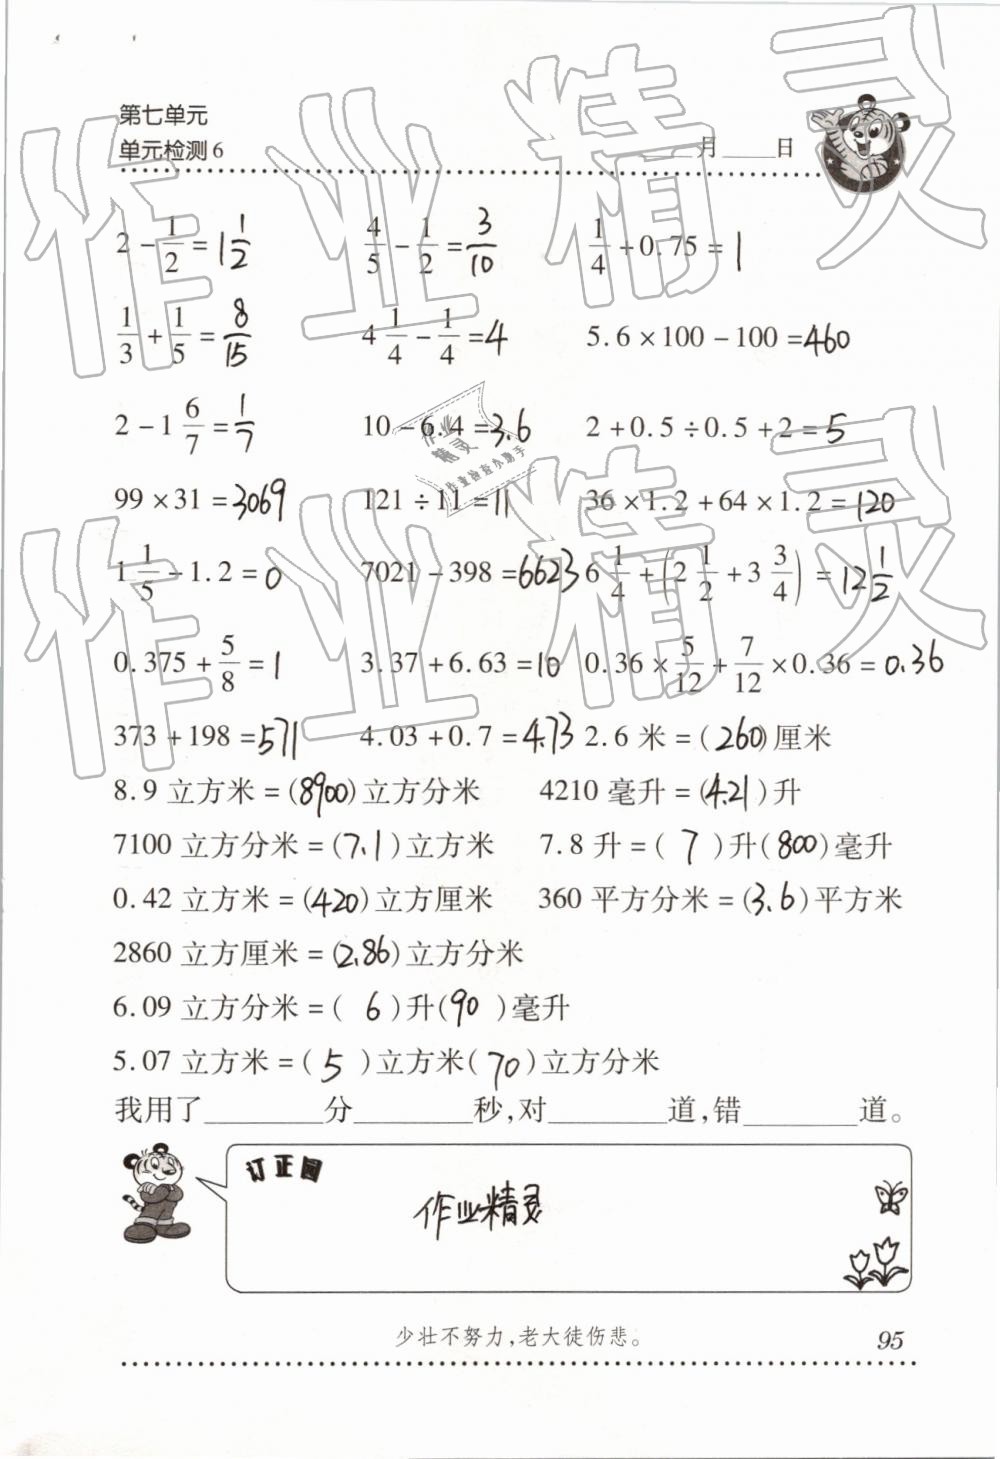 第七单元
单元检测6 ____月____日
2 - 1/2 = 1 1/2  4/5 - 1/2 = 3/10  1/4 + 0.75 = 1
1/3 + 1/5 = 8/15  4 1/4 - 1/4 = 4  5.6 × 100 - 100 = 460
2 - 1 6/7 = 1/7  10 - 6.4 = 3.6  2 + 0.5 ÷ 0.5 + 2 = 5
99 × 31 = 3069  121 ÷ 11 = 11  36 × 1.2 + 64 × 1.2 = 120
1 1/5 - 1.2 = 0  7021 - 398 = 6623  6 1/4 + (2 1/2 + 3 3/4) = 12 1/2
0.375 + 5/8 = 1  3.37 + 6.63 = 10  0.36 × 5/12 + 7/12 × 0.36 = 0.36
373 + 198 = 571  4.03 + 0.7 = 4.73  2.6 米 = (260)厘米
8.9 立方米 = (8900)立方分米  4210 毫升 = (4.21)升
7100 立方分米 = (7.1)立方米  7.8 升 = (7)升(800)毫升
0.42 立方米 = (420)立方厘米  360 平方分米 = (3.6)平方米
2860 立方厘米 = (2.86)立方分米
6.09 立方分米 = (6)升(90)毫升
5.07 立方米 = (5)立方米(70)立方分米
我用了________分________秒,对________道,错________道。
订正园
作业精灵
少壮不努力,老大徒伤悲。
95
作业精灵
作业精灵
作业精灵
作业检查小助手